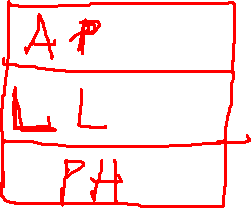 AP
LL
PH